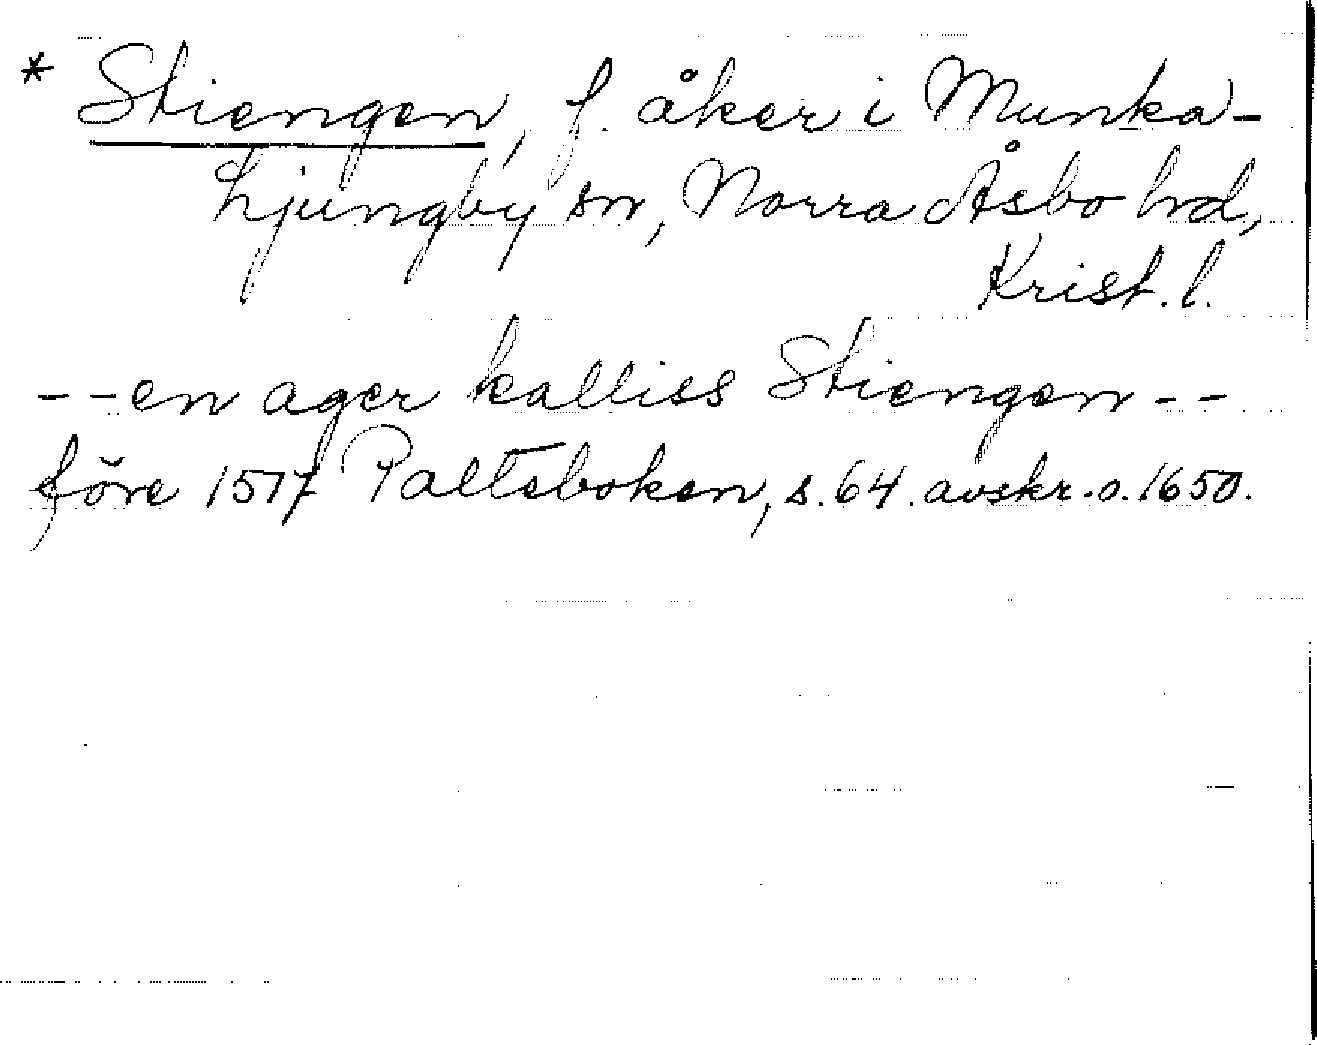 * Stiengen, f. åker i Munka-
Ljungby sn, Norra Åsbo hd,
Krist. l.
--en ager kalliss Stiengen--
före 1517 Palteboken, s. 64. avskr. o. 1650.